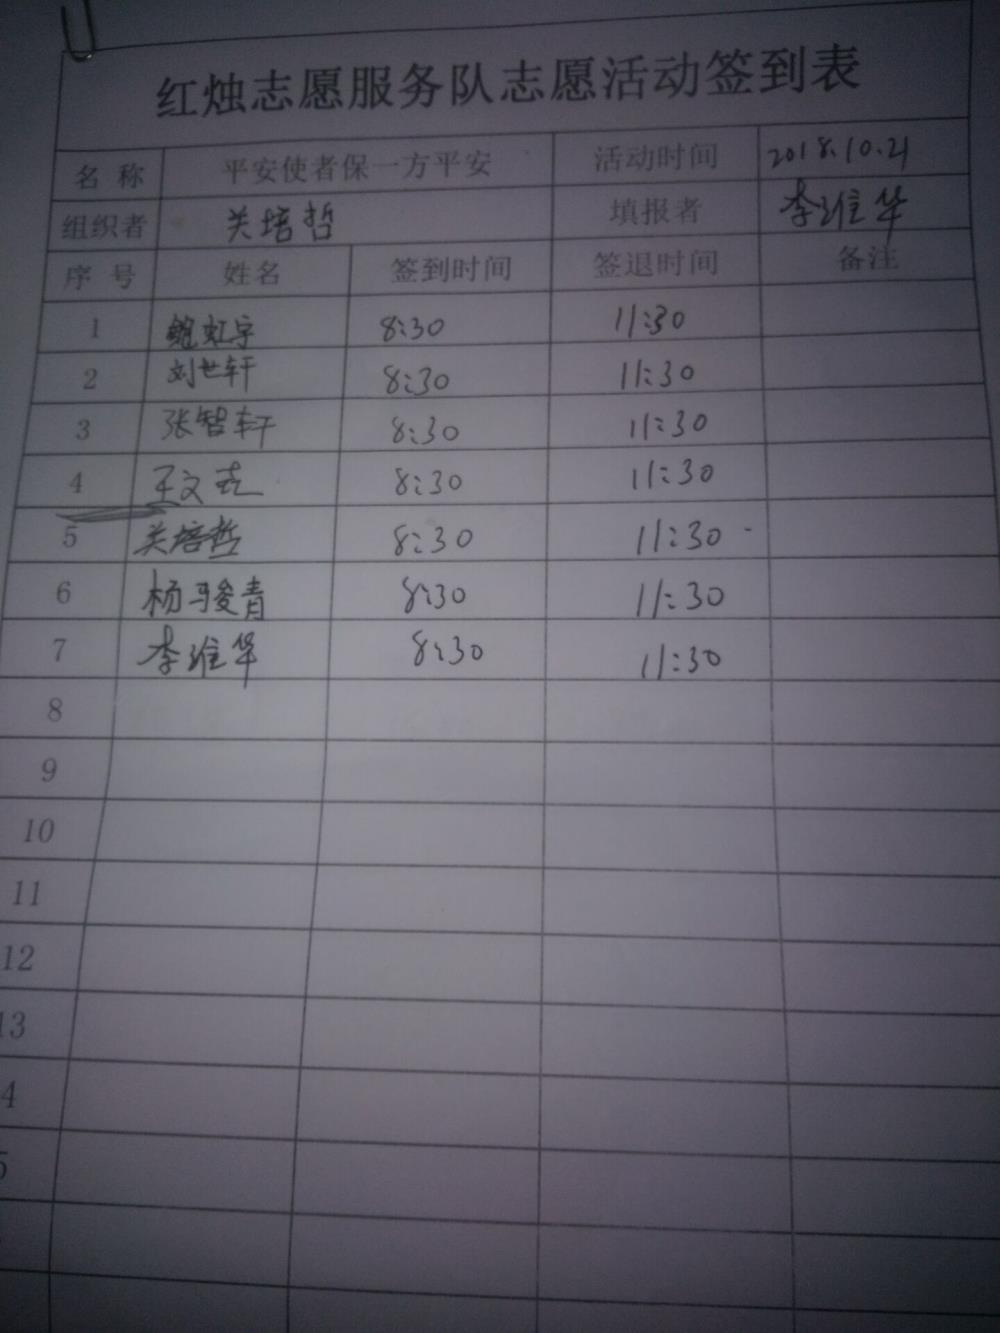 红烛志愿服务队志愿活动签到表
名 称 平安使者保一方平安 活动时间 2018.10.21
组织者 关培哲 填报者 李维华
序 号 姓名 签到时间 签退时间 备注
1 鲍虹宇 8:30 11:30
2 刘世轩 8:30 11:30
3 张智轩 8:30 11:30
4 王文 8:30 11:30
5 关培哲 8:30 11:30
6 杨骏青 8:30 11:30
7 李维华 8:30 11:30
8
9
10
11
12
13
4
5